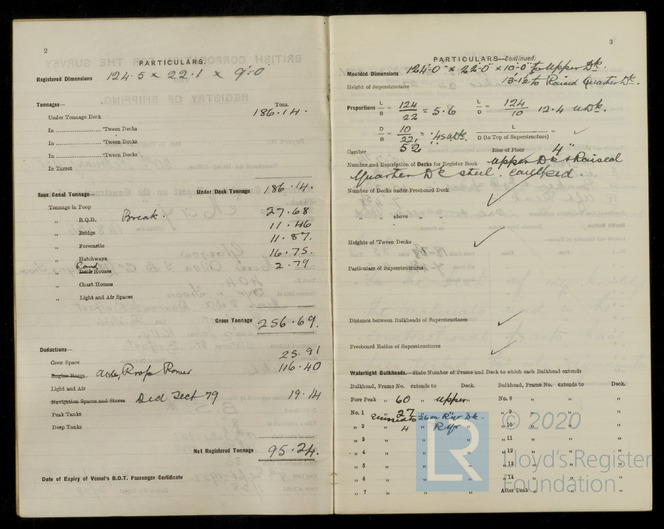 2
PARTICULARS.
Registered Dimensions 124.5 x 22.1 x 9.0
Tonnages— Tons.
Under Tonnage Deck 186.14.
In 'Tween Decks
In 'Tween Decks
In 'Tween Decks
In Turret
Suez Canal Tonnage— Under Deck Tonnage 186.14.
Tonnage in Poop
„ R.Q.D. Break. 27.68
„ Bridge 11.46
„ Forecastle 11.87.
„ Hatchways 16.75.
„ Houses 2.79
„ Chart Houses
„ Light and Air Spaces
Gross Tonnage 256.69.
Deductions—
Crew Space 25.91
116.40
Light and Air
Navigation Spaces and Stores Ded Sect 79 19.14
Peak Tanks
Deep Tanks
Net Registered Tonnage 95.24.
Date of Expiry of Vessel's B.O.T. Passenger Certificate
3
PARTICULARS—Continued.
Moulded Dimensions 124.0 x 22.0 x 10.0 to Upper Dk.
Height of Superstructure to Raised Quarter Dk.
Proportions L/B = 124/22 = 5.6 L/D = 124/10 12.4 U.Dk.
D/B = 10/22 = .45 U.Dk. L/D (to Top of Superstructure)
Camber 5 Rise of Floor 4"
Number and Description of Decks for Register Book Upper Dk & Raised
Quarter Dk steel. caulked.
Number of Decks under Freeboard Deck
„ „ above „
Heights of 'Tween Decks
Particulars of Superstructures
Distance between Bulkheads of Superstructures
Freeboard Ratios of Superstructures
Watertight Bulkheads.—State Number of Frame and Deck to which each Bulkhead extends
Bulkhead, Frame No. extends to Deck. Bulkhead, Frame No. extends to Deck.
Fore Peak „ 60 „ Upper No. 8
No. 1 27 „ 9
„ 2 „ 4 „ „ 10
„ 3 „ 11
„ 4 „ 12
„ 5 „ 13
„ 6 „ 14
„ 7 After Peak
LR
© 2020
Lloyd's Register
Foundation